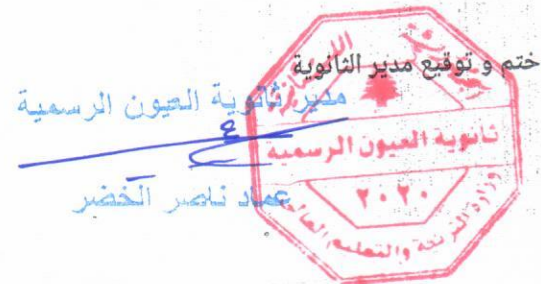 ختم و توقيع مدير الثانوية
مدير ثانوية العيون الرسمية
عماد ناصر الخضر
ثانوية العيون الرسمية
٢٠٢٠
وزارة التربية والتعليم العالي